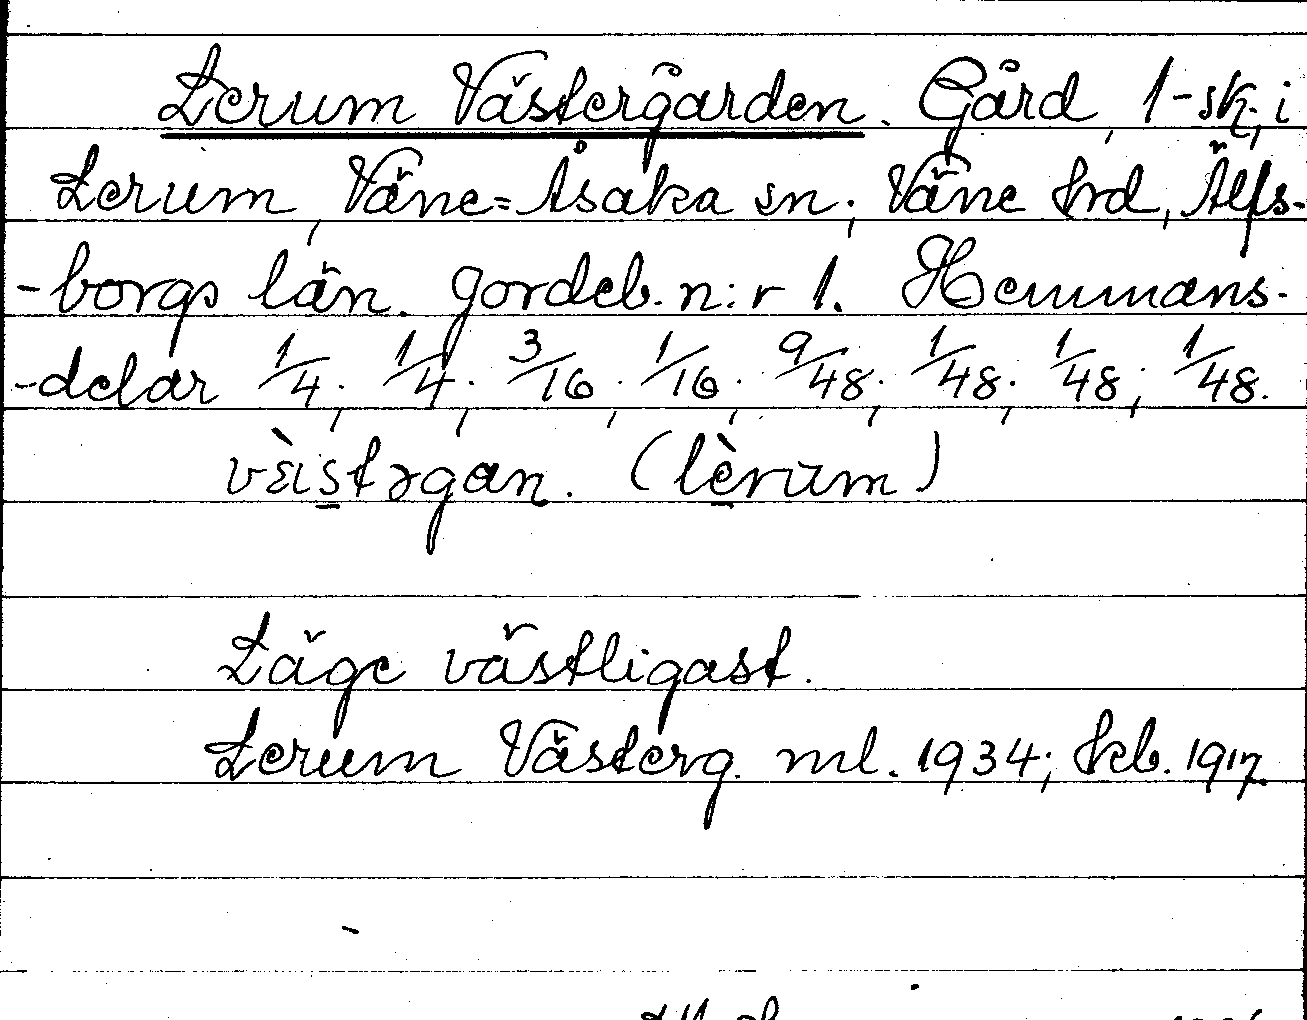 Lerum Västergården. Gård, 1-sk, i
Lerum, Väne-Åsaka sn; Väne hrd, Älfs-
-borgs län. Jordeb. n:r 1. Hemmans-
-delar 1/4; 1/4; 3/16; 1/16; 9/48; 1/48; 1/48; 1/48.
(lèrum)
Läge västligast.
Lerum Västerg. ml. 1934; kb. 1917